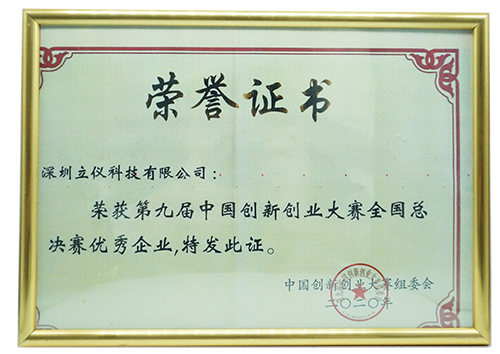 荣誉证书
深圳立仪科技有限公司：
荣获第九届中国创新创业大赛全国总
决赛优秀企业,特发此证。
中国创新创业大赛组委会
二〇二〇年